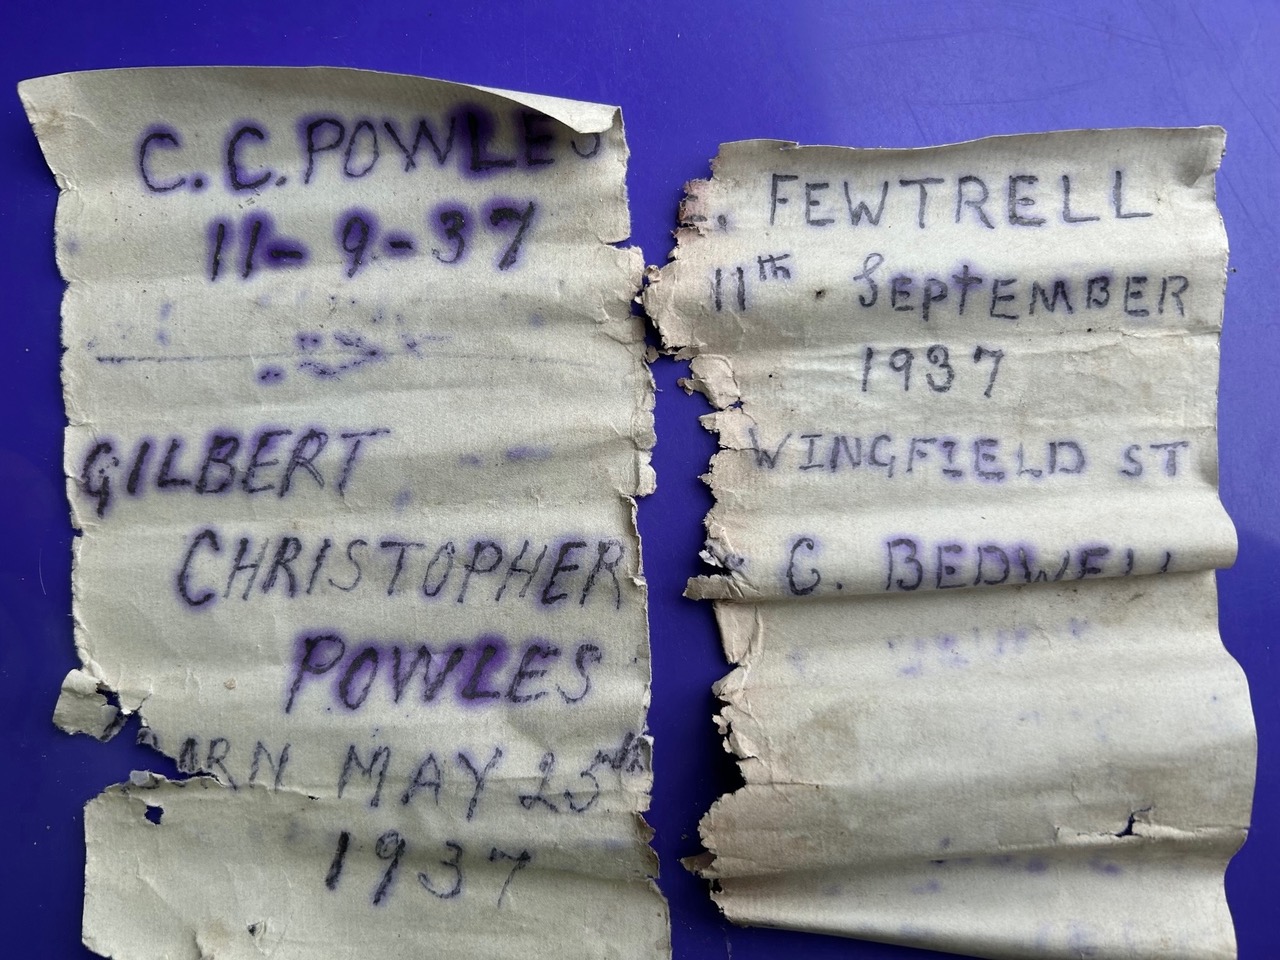 C. C. POWLES
11-9-37
GILBERT
CHRISTOPHER
POWLES
BORN MAY 25th
1937
E. FEWTRELL
11th SEPTEMBER
1937
WINGFIELD ST
G. BEDWELL